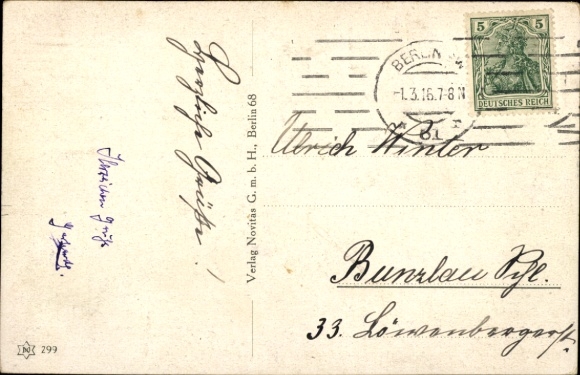 Herzliche Grüße!
Verlag Novitas G. m. b. H., Berlin 68
299
5 5
DEUTSCHES REICH
BERLIN SW
-1.3.16.7-8N
61
Ulrich Winter
Bunzlau Schl.
33. Löwenbergerstr.